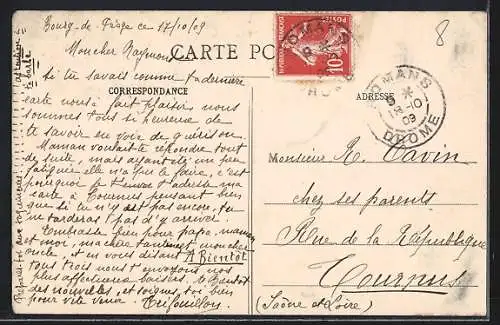 Bourg-de-Péage ce 17/10/09
8
Mon cher Raymond
CARTE PO
ROMANS
18-10
09
DROME
CORRESPONDANCE
ADRESSE
Si tu savais comme ta dernière
carte nous a fait plaisir nous
sommes tous si heureuse de
te savoir en voie de guérison.
Maman voulait te répondre tout
de suite, mais ayant été un peu
fatiguée elle n'a pu le faire, c'est
pourquoi je t'envoie adresse ma
carte à Tournus pensant bien
que si tu n'y est pas encore, tu
ne tarderas pas d'y arriver.
Embrasse bien pour papa, maman
et moi, ma chère tante et mon cher
oncle et en vous disant A Bientôt
tous trois nous t'envoyons nos
plus affectueux baisers. A Bientôt
des nouvelles, et soignes toi bien
pour vite venir.
Monsieur R. Tavin
chez ses parents
Rue de la République
Tournus
(Saône et Loire)